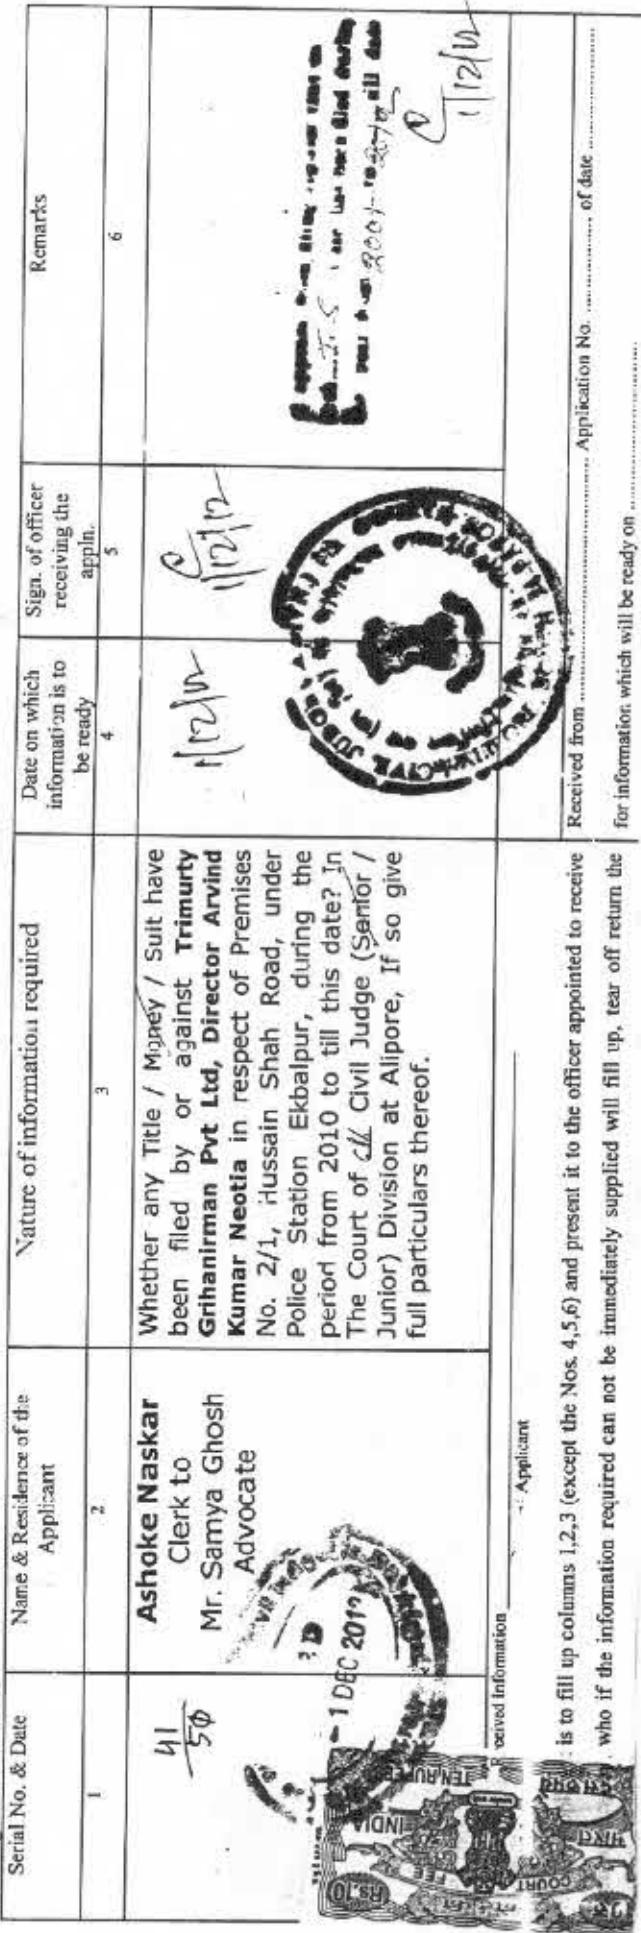 Serial No. & Date
Name & Residence of the
Applicant
Nature of information required
Date on which
information is to
be ready
Sign. of officer
receiving the
appln.
Remarks
1
2
3
4
5
6
41
50
Ashoke Naskar
Clerk to
Mr. Samya Ghosh
Advocate
Whether any Title / Money / Suit have
been filed by or against Trimurty
Grihanirman Pvt Ltd, Director Arvind
Kumar Neotia in respect of Premises
No. 2/1, Hussain Shah Road, under
Police Station Ekbalpur, during the
period from 2010 to till this date? In
The Court of Civil Judge (Senior /
Junior) Division at Alipore, If so give
full particulars thereof.
1/12/12
1/12/12
filed during
2001 to 2012 till date
1/12/12
CIVIL JUDGE
- 1 DEC 201
Received information
Applicant
Received from Application No. of date
for information which will be ready on
is to fill up columns 1,2,3 (except the Nos. 4,5,6) and present it to the officer appointed to receive
who if the information required can not be immediately supplied will fill up, tear off return the
Rs.10
INDIA
TEN RUPEES
COURT FEE
भारत